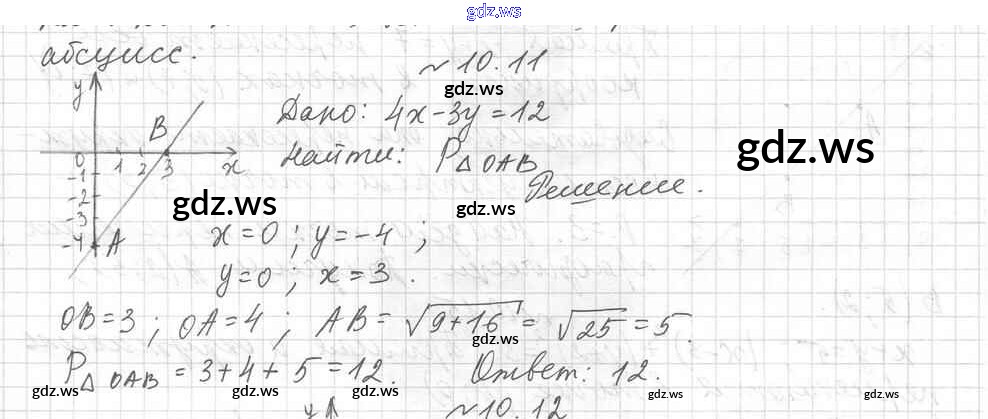 gdz.ws
абсцисс.
№10.11
gdz.ws
y
Дано: 4x-3y=12
B
gdz.ws
0 1 2 3 x
Найти: P△OAB
-1
Решение.
-2
gdz.ws
gdz.ws
-3
-4 A
x=0; y=-4;
y=0; x=3.
OB=3; OA=4; AB=√9+16=√25=5.
gdz.ws
P△OAB=3+4+5=12. Ответ: 12.
gdz.ws gdz.ws gdz.ws gdz.ws gdz.ws
y №10.12